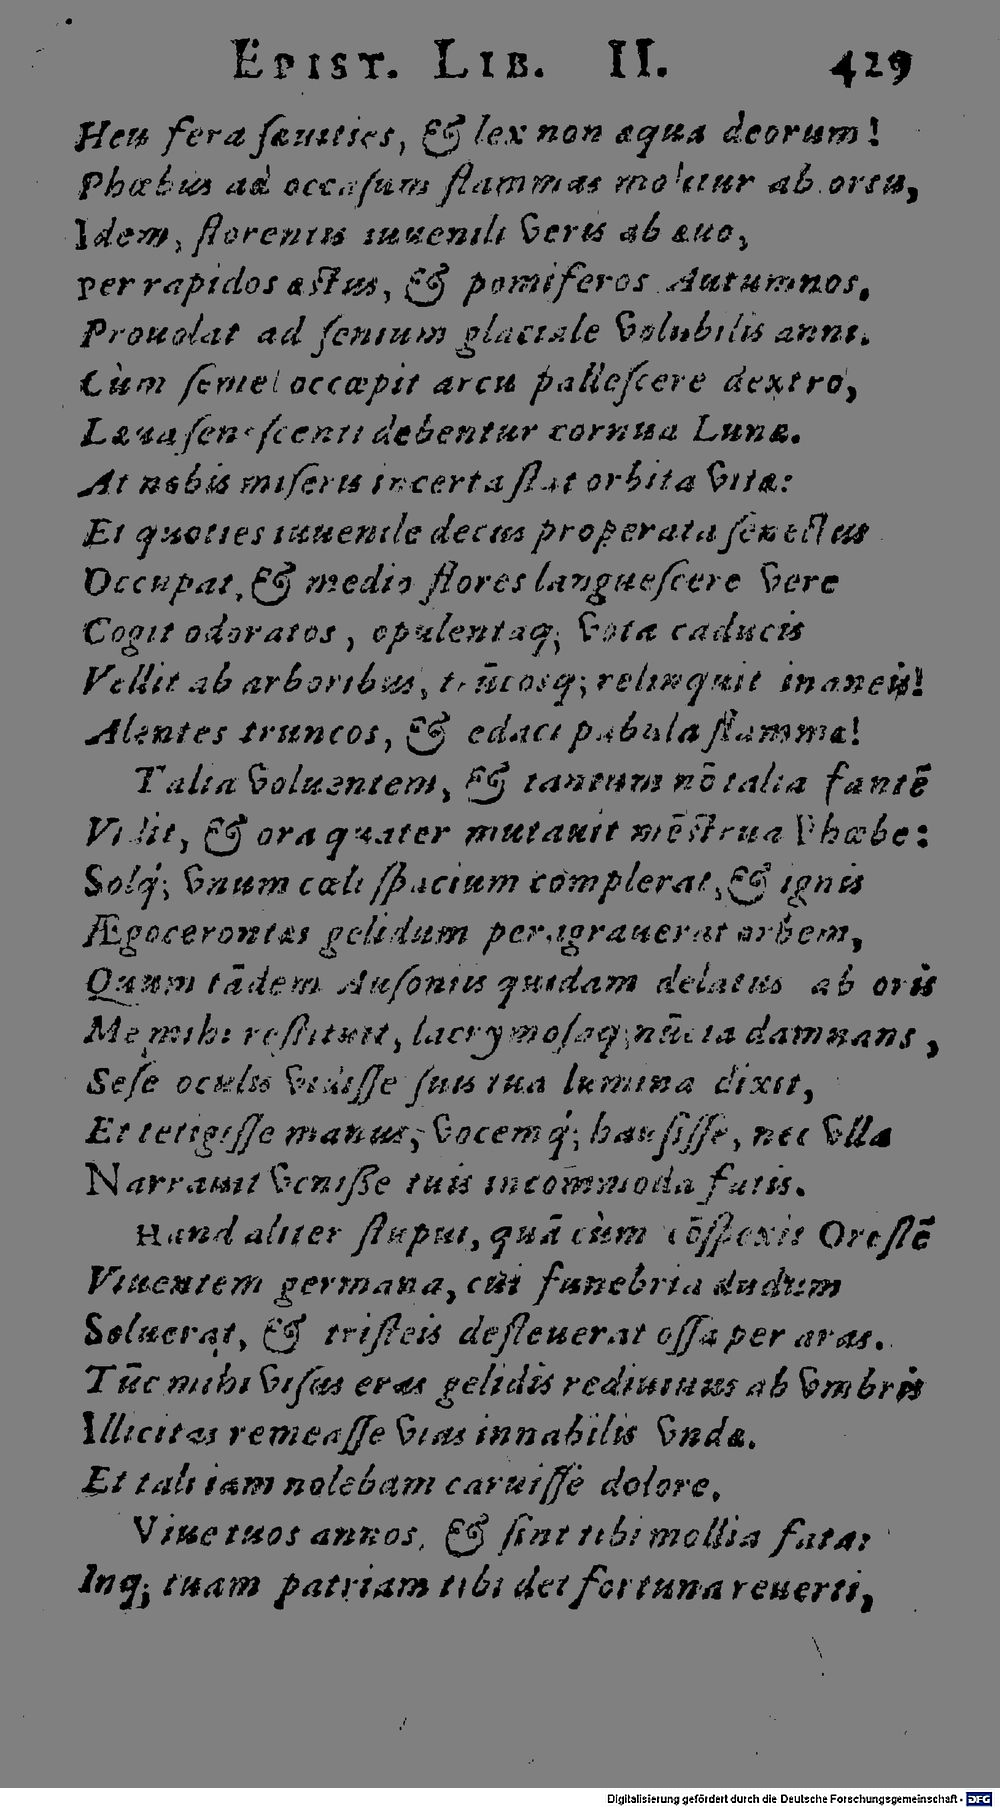 EPIST. LIB. II. 429
Heu fera sæuities, & lex non æqua deorum!
Phœbus ad occasum flammas molitur ab ortu,
Idem, florentis iuuenili veris ab æuo,
Per rapidos æstus, & pomiferos Autumnos,
Prouolat ad senium glaciale volubilis anni.
Cùm semel occœpit arcu pallescere dextro,
Læua senescenti debentur cornua Lunæ.
At nobis miseris incerta stat orbita vitæ:
Et quoties iuuenile decus properata senectus
Occupat, & medio flores languescere vere
Cogit odoratos, opulentaq; vota caducis
Vellit ab arboribus, trūcosq; relinquit inaneis!
Alentes truncos, & edaci pabula flammæ!
Talia voluentem, & tantum nō talia fantē
Vidit, & ora quater mutauit mēstrua Phœbe:
Solq́; vnum cæli spacium complerat, & ignis
Ægocerontæs gelidum peragrauerat orbem,
Quum tādem Ausoniis quidam delatus ab oris
Me mihi restituit, lacrymosaq; nūcia damnans,
Sese oculis vidisse suis tua lumina dixit,
Et tetigisse manus, vocemq́; hausisse, nec vlla
Narrauit venisse tuis incōmmoda fatis.
Haud aliter stupui, quā cùm cōspexit Orestē
Viuentem germana, cui funebria dudum
Soluerat, & tristeis defleuerat ossa per aras.
Tūc mihi visus eras gelidis rediuiuus ab vmbris
Illicitas remeasse vias innabilis vndæ.
Et tali iam nolebam caruisse dolore.
Viue tuos annos, & sint tibi mollia fata:
Inq; tuam patriam tibi det fortuna reuerti,
Digitalisierung gefördert durch die Deutsche Forschungsgemeinschaft - DFG